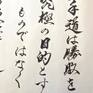 手道は勝敗を
究極の目的とす
ものではなく